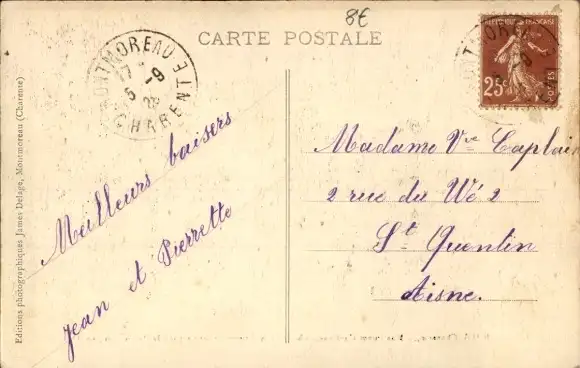 8€
CARTE POSTALE
MONTMOREAU
CHARENTE
17
5 -9
REPUBLIQUE FRANÇAISE
25
POSTES
Madame Vve Caplain
2 rue du Wé 2
St Quentin
Aisne.
Meilleurs baisers
Jean et Pierrette
Editions photographiques James Delage, Montmoreau (Charente)